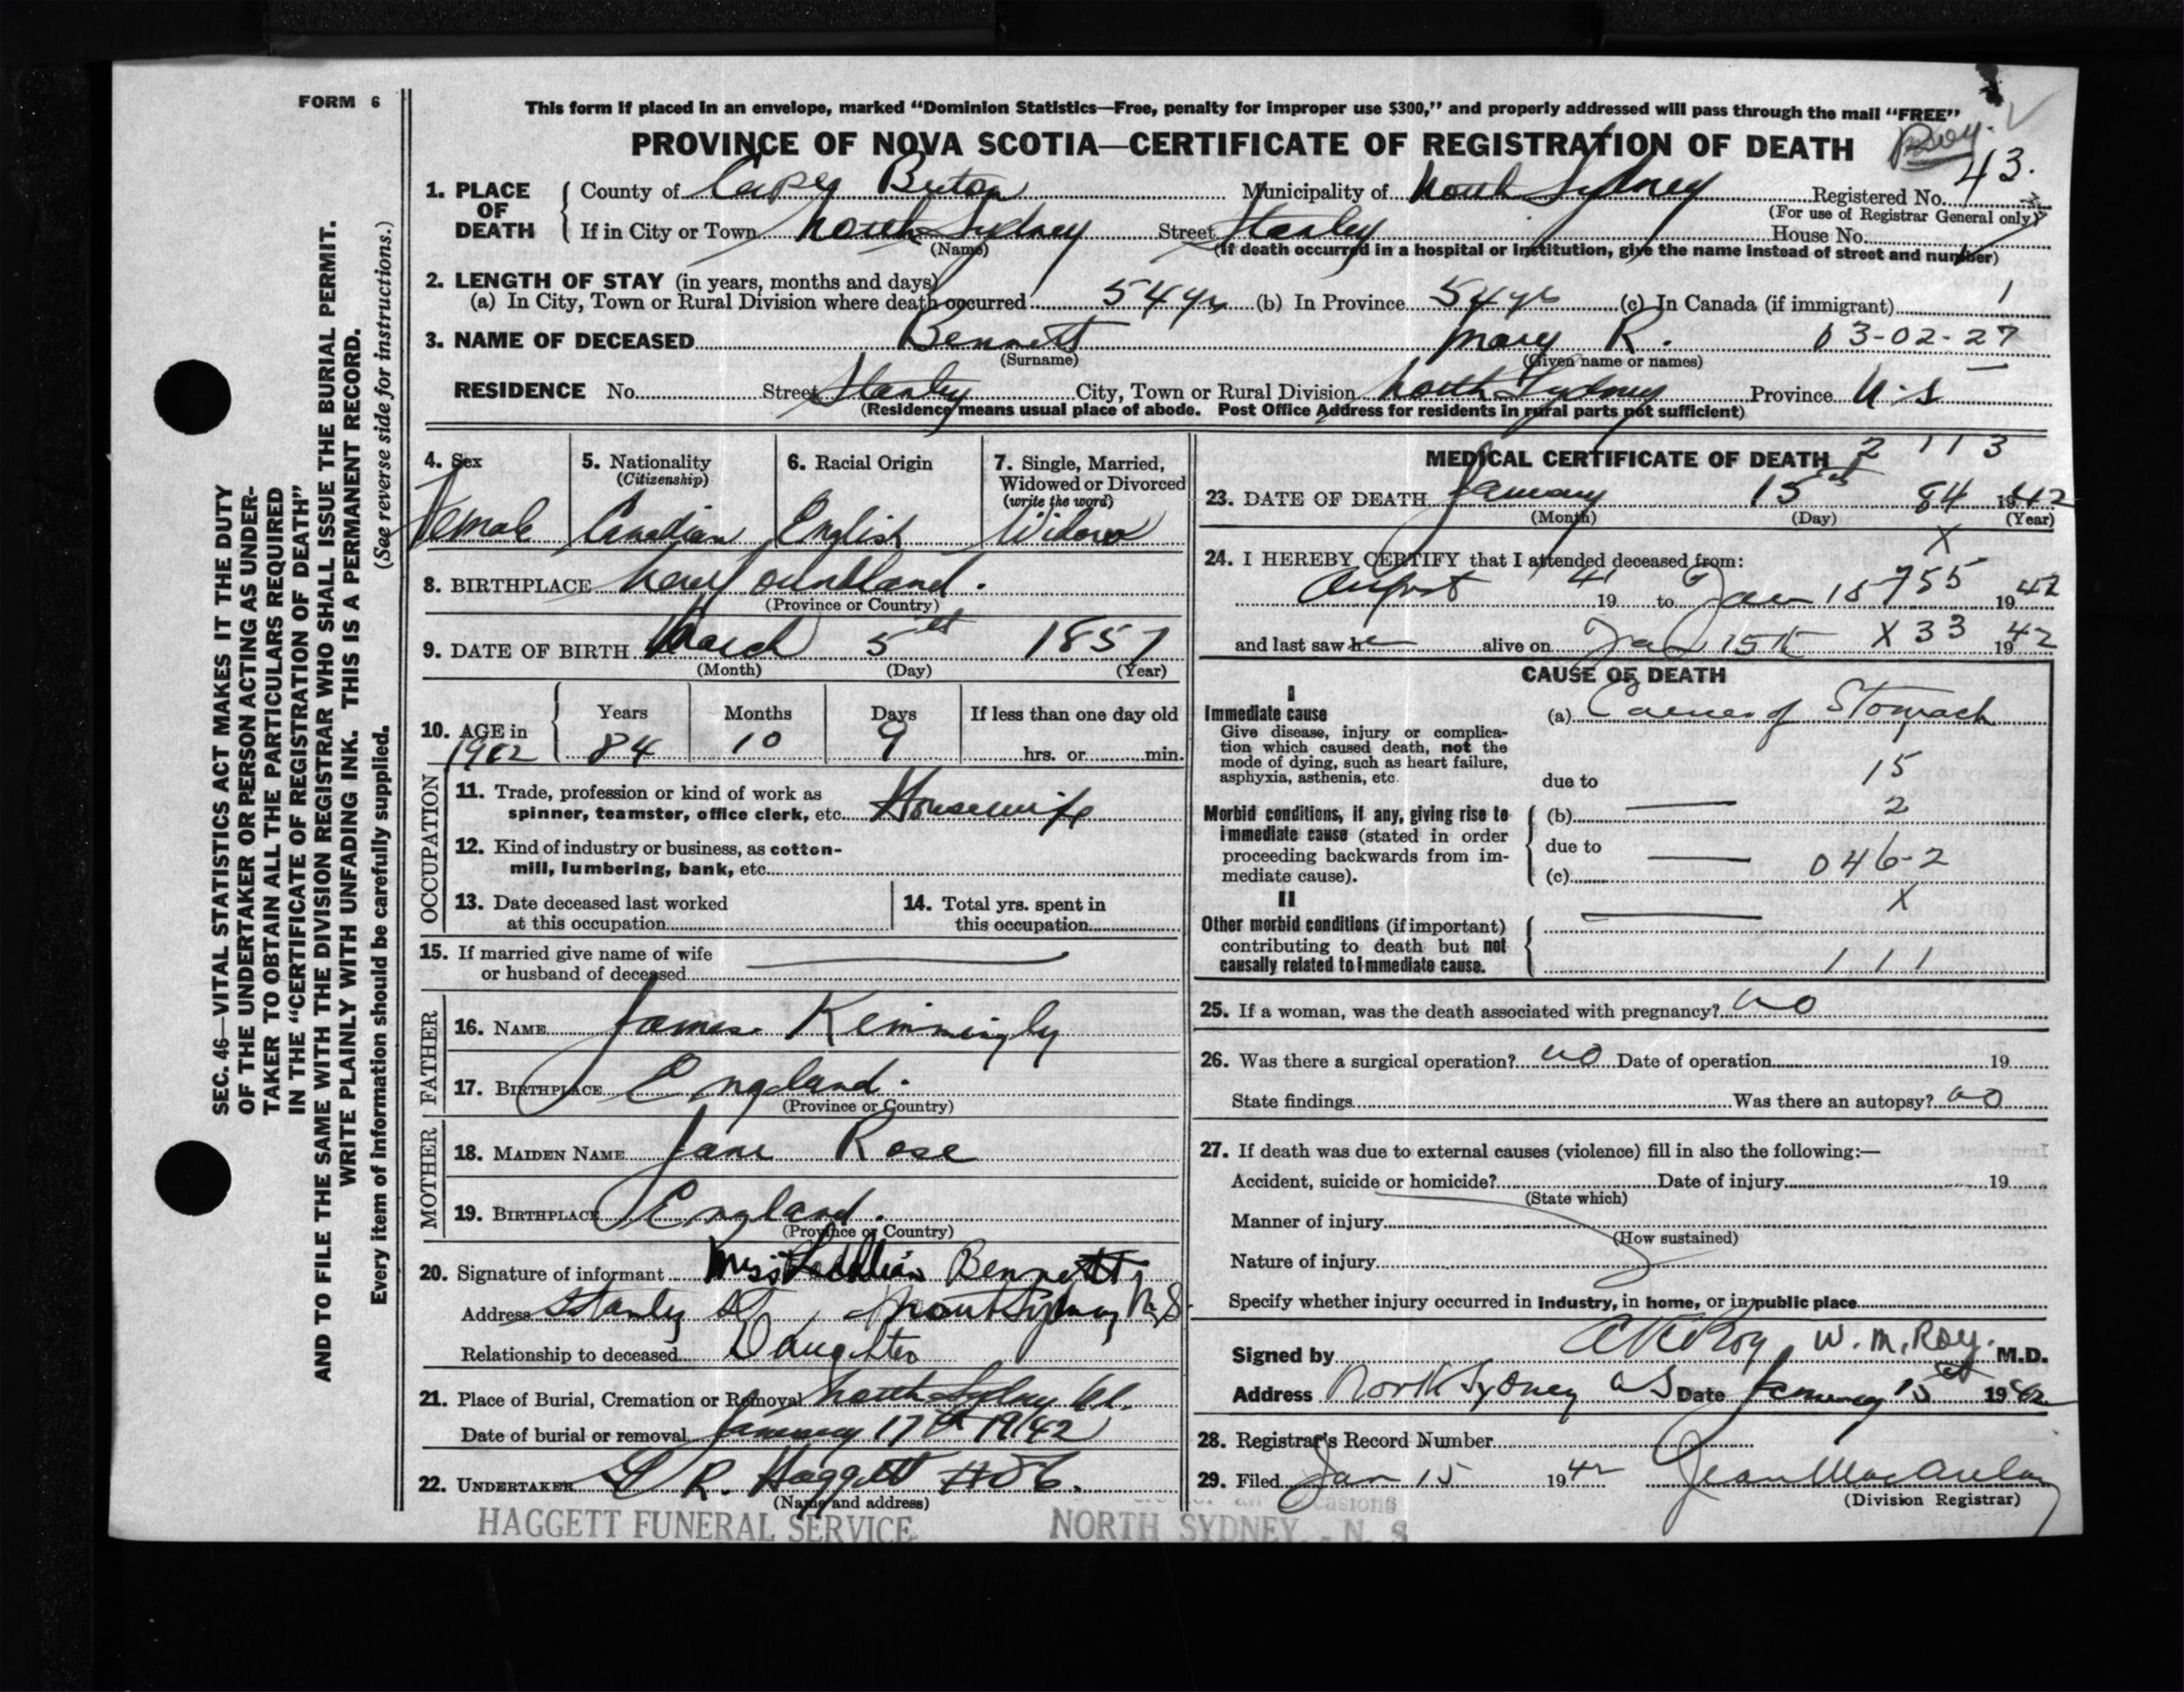 FORM 6
This form if placed in an envelope, marked “Dominion Statistics—Free, penalty for improper use $300,” and properly addressed will pass through the mail “FREE”
PROVINCE OF NOVA SCOTIA—CERTIFICATE OF REGISTRATION OF DEATH Roy.
1. PLACE OF DEATH { County of Cape Breton Municipality of North Sydney Registered No. 43.
(For use of Registrar General only)
If in City or Town North Sydney Street Stanley House No.
(Name) (If death occurred in a hospital or institution, give the name instead of street and number)
2. LENGTH OF STAY (in years, months and days)
(a) In City, Town or Rural Division where death occurred 54 yrs (b) In Province 54 yrs (c) In Canada (if immigrant) 1
3. NAME OF DECEASED Bennett Mary R. 03-02-27
(Surname) (Given name or names)
RESIDENCE No. Street Stanley City, Town or Rural Division North Sydney Province N.S
(Residence means usual place of abode. Post Office Address for residents in rural parts not sufficient)
4. Sex Female
5. Nationality (Citizenship) Canadian
6. Racial Origin English
7. Single, Married, Widowed or Divorced (write the word) Widow
8. BIRTHPLACE Newfoundland.
(Province or Country)
9. DATE OF BIRTH March 5th 1857
(Month) (Day) (Year)
10. AGE in 1942 { Years 84 Months 10 Days 9 If less than one day old
hrs. or min.
OCCUPATION
11. Trade, profession or kind of work as
spinner, teamster, office clerk, etc. Housewife
12. Kind of industry or business, as cotton-
mill, lumbering, bank, etc.
13. Date deceased last worked
at this occupation
14. Total yrs. spent in
this occupation
15. If married give name of wife
or husband of deceased
FATHER
16. NAME James Kenningly
17. BIRTHPLACE England.
(Province or Country)
MOTHER
18. MAIDEN NAME Jane Rose
19. BIRTHPLACE England.
(Province or Country)
20. Signature of informant Miss Bennett
Address Stanley St. North Sydney N.S.
Relationship to deceased Daughter
21. Place of Burial, Cremation or Removal North Sydney
Date of burial or removal January 17th 1942
22. UNDERTAKER R. Haggett
(Name and address)
HAGGETT FUNERAL SERVICE NORTH SYDNEY, - N. S
MEDICAL CERTIFICATE OF DEATH 2 1 1 3
23. DATE OF DEATH January 15th 84 1942
(Month) (Day) (Year)
X
24. I HEREBY CERTIFY that I attended deceased from:
August 1941 to Jan 15 755 1942
and last saw her alive on Jan 15th X33 1942
CAUSE OF DEATH
I
Immediate cause (a) Cancer of Stomach
Give disease, injury or complica-
tion which caused death, not the
mode of dying, such as heart failure,
asphyxia, asthenia, etc. due to 15
Morbid conditions, if any, giving rise to
immediate cause (stated in order
proceeding backwards from im-
mediate cause).
(b) 2
due to
(c) 046-2
X
II
Other morbid conditions (if important)
contributing to death but not
causally related to immediate cause. 1 1 1
25. If a woman, was the death associated with pregnancy? no
26. Was there a surgical operation? no Date of operation 19
State findings Was there an autopsy? no
27. If death was due to external causes (violence) fill in also the following:—
Accident, suicide or homicide? Date of injury 19
(State which)
Manner of injury
(How sustained)
Nature of injury
Specify whether injury occurred in industry, in home, or in public place
Signed by W. M. Roy. M.D.
Address North Sydney NS Date January 15th 1942
28. Registrar's Record Number
29. Filed Jan 15 1942 Jean MacAulay
(Division Registrar)
SEC. 46—VITAL STATISTICS ACT MAKES IT THE DUTY
OF THE UNDERTAKER OR PERSON ACTING AS UNDER-
TAKER TO OBTAIN ALL THE PARTICULARS REQUIRED
IN THE “CERTIFICATE OF REGISTRATION OF DEATH”
AND TO FILE THE SAME WITH THE DIVISION REGISTRAR WHO SHALL ISSUE THE BURIAL PERMIT.
WRITE PLAINLY WITH UNFADING INK. THIS IS A PERMANENT RECORD.
Every item of information should be carefully supplied. (See reverse side for instructions.)